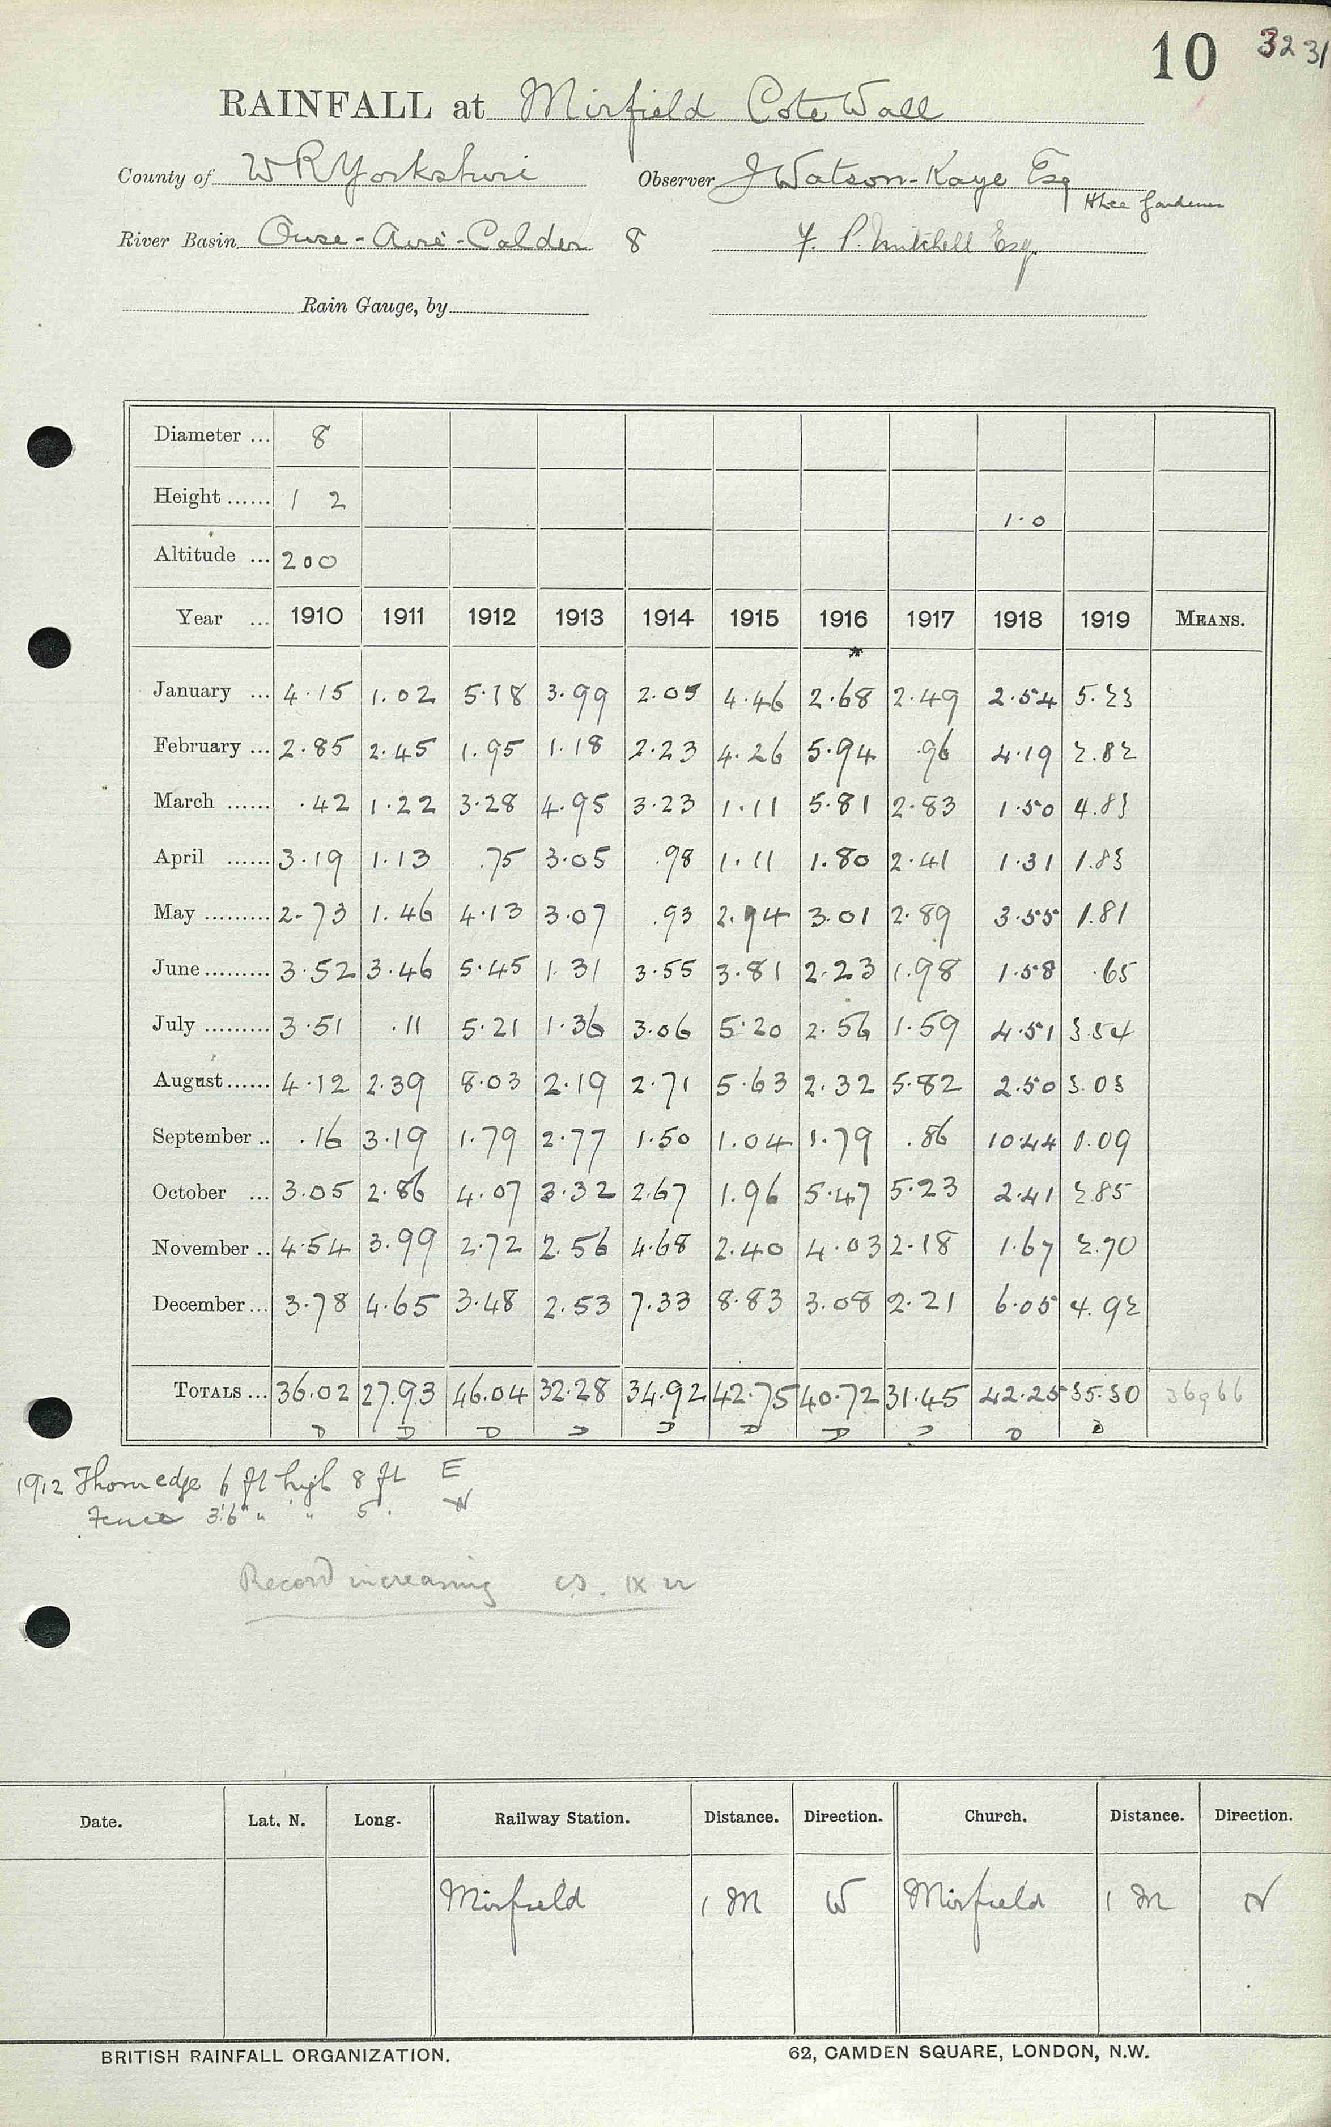 10 3231
RAINFALL at Mirfield Cote Wall
County of W R Yorkshire Observer J Watson-Kaye Esq
River Basin Ouse-Aire-Calder 8 F. P. Mitchell Esq.
Rain Gauge, by
Diameter ... 8
Height ...... 1 2 1·0
Altitude ... 200
Year ... 1910 1911 1912 1913 1914 1915 1916 1917 1918 1919 MEANS.
*
January ... 4.15 1.02 5.18 3.99 2.05 4.46 2.68 2.49 2.54 5.23
February ... 2.85 2.45 1.95 1.18 2.23 4.26 5.94 .96 4.19 2.82
March ...... .42 1.22 3.28 4.95 3.23 1.11 5.81 2.83 1.50 4.83
April ...... 3.19 1.13 .75 3.05 .98 1.11 1.80 2.41 1.31 1.83
May ......... 2.73 1.46 4.13 3.07 .93 2.94 3.01 2.89 3.55 1.81
June ......... 3.52 3.46 5.45 1.31 3.55 3.81 2.23 1.98 1.58 .65
July ......... 3.51 .11 5.21 1.36 3.06 5.20 2.56 1.59 4.51 3.54
August ...... 4.12 2.39 8.03 2.19 2.71 5.63 2.32 5.82 2.50 3.03
September .. .16 3.19 1.79 2.77 1.50 1.04 1.79 .86 10.44 1.09
October ... 3.05 2.86 4.07 3.32 2.67 1.96 5.47 5.23 2.41 2.85
November .. 4.54 3.99 2.72 2.56 4.68 2.40 4.03 2.18 1.67 2.70
December ... 3.78 4.65 3.48 2.53 7.33 8.83 3.08 2.21 6.05 4.92
TOTALS ... 36.02 27.93 46.04 32.28 34.92 42.75 40.72 31.45 42.25 35.30 36966
D D D D D D D D D D
1912 Thorn edge 6 ft high 8 ft E
Fence 3'.6" " " 5'. N
Record increasing
Date. Lat. N. Long. Railway Station. Distance. Direction. Church. Distance. Direction.
Mirfield 1 M W Mirfield 1 M N
BRITISH RAINFALL ORGANIZATION. 62, CAMDEN SQUARE, LONDON, N.W.